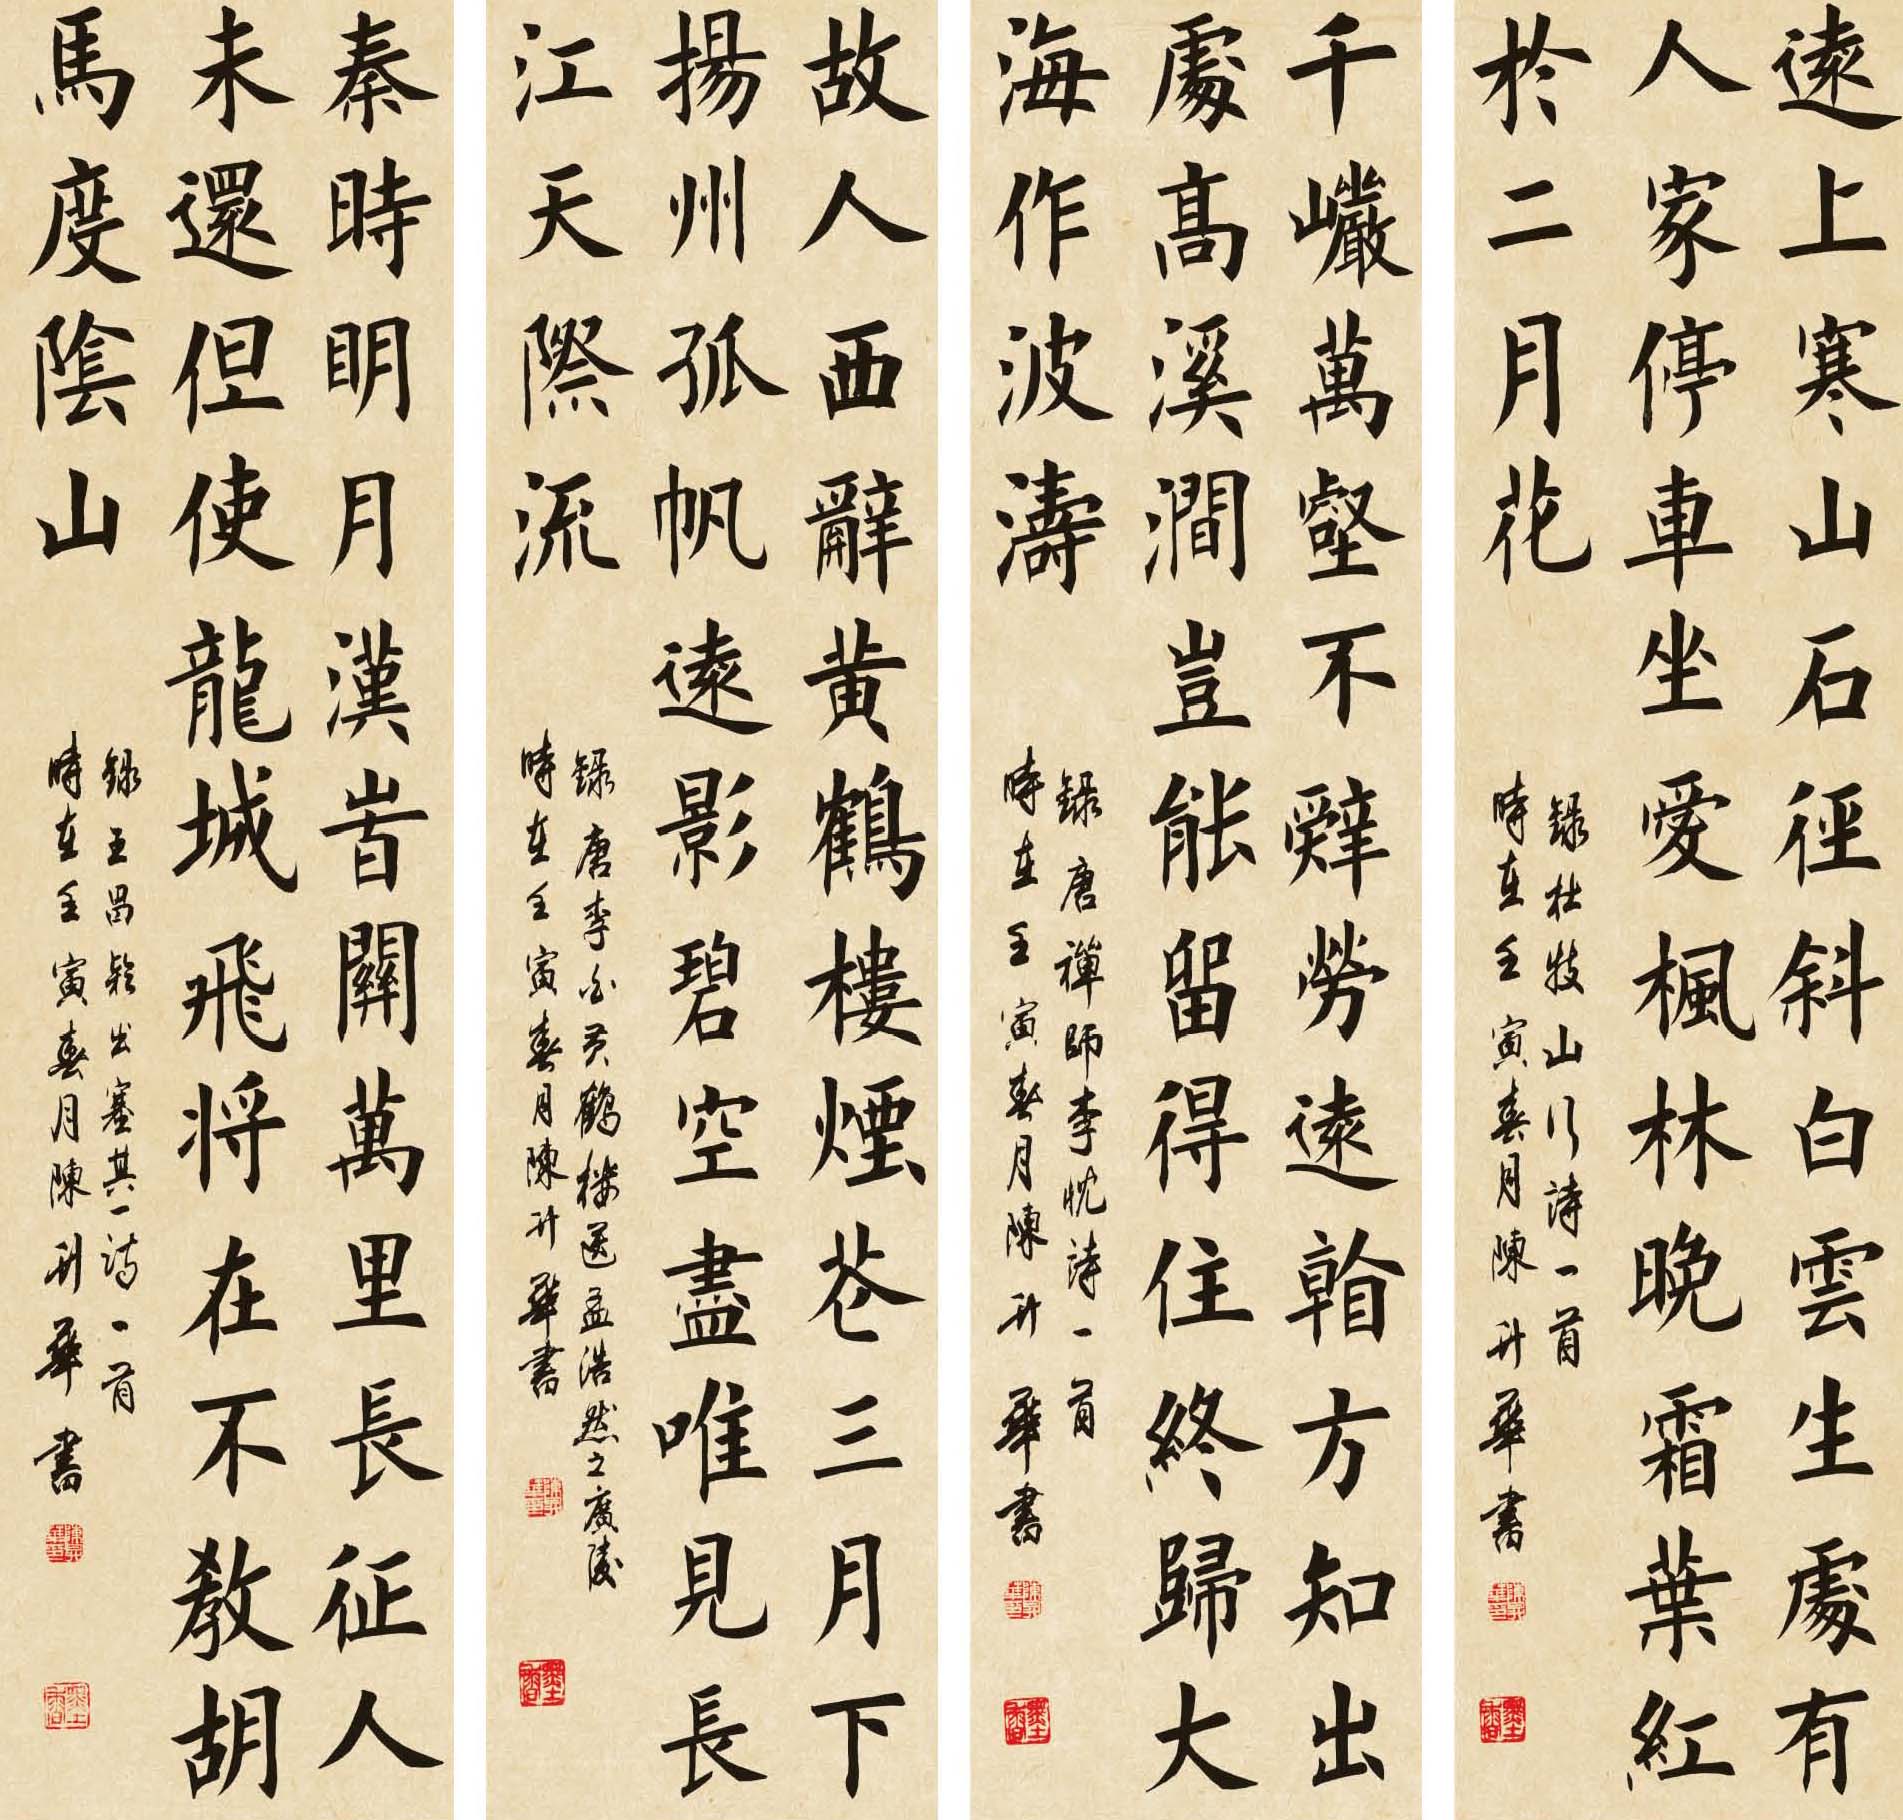 遠上寒山石徑斜白雲生處有
人家停車坐愛楓林晚霜葉紅
於二月花
錄杜牧山行詩一首
時在壬寅春月陳升華書
千巖萬壑不辭勞遠看方知出
處高溪澗豈能留得住終歸大
海作波濤
錄唐禪師李忱詩一首
時在壬寅春月陳升華書
故人西辭黃鶴樓煙花三月下
揚州孤帆遠影碧空盡唯見長
江天際流
錄唐李白黃鶴樓送孟浩然之廣陵
時在壬寅春月陳升華書
秦時明月漢時關萬里長征人
未還但使龍城飛將在不教胡
馬度陰山
錄王昌齡出塞其一詩一首
時在壬寅春月陳升華書